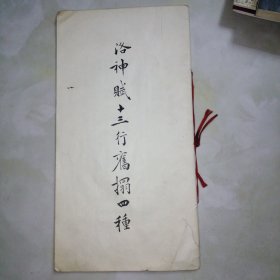 洛神賦十三行舊搨四種